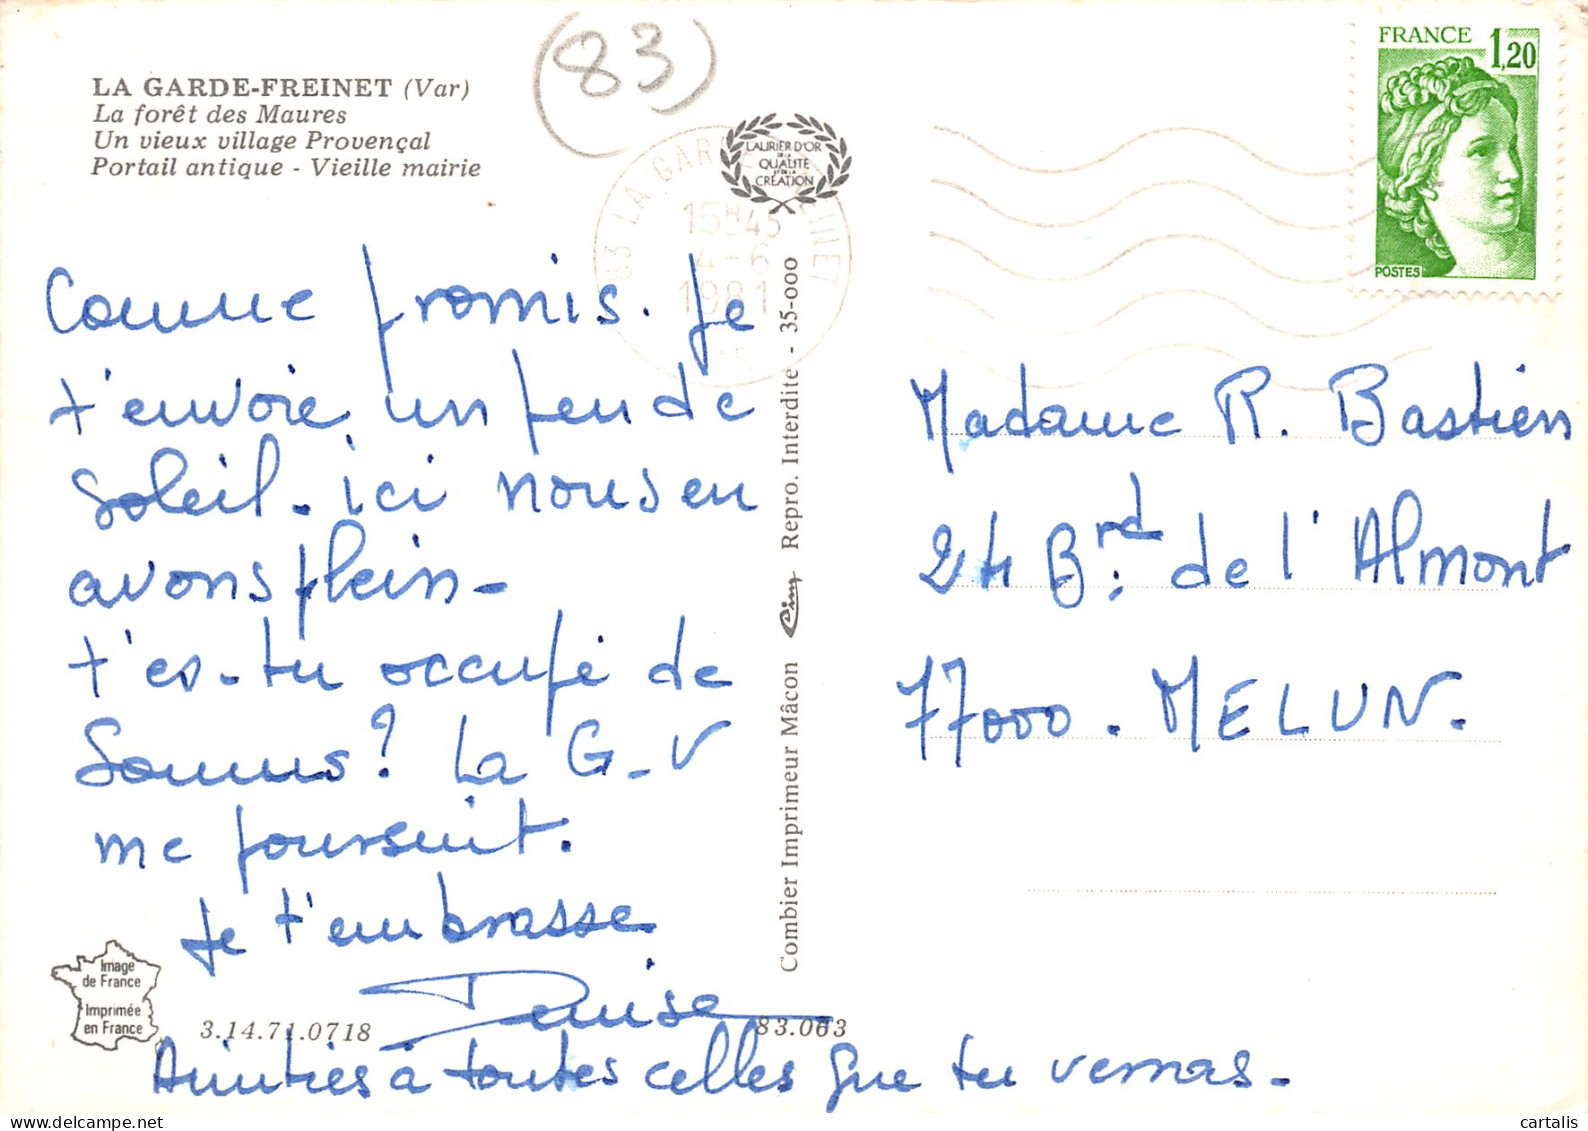 (83)
LA GARDE-FREINET (Var)
La forêt des Maures
Un vieux village Provençal
Portail antique - Vieille mairie
LAURIER D'OR
DE LA
QUALITÉ
ET DE LA
CRÉATION
83 LA GARDE FREINET
15H45
4-6
1981
VAR
FRANCE 1,20
POSTES
Comme promis. Je
t'envoie un peu de
soleil. ici nous en
avons plein -
t'es-tu occupé de
Sommus? La G-V
me poursuit.
Je t'embrasse
Denise
Amitiés à toutes celles que tu verras.
Madame R. Bastien
24 B.rd de l'Almont
77000. MELUN.
Combier Imprimeur Mâcon Cim Repro. Interdite - 35-000
Image
de France
Imprimée
en France
3.14.71.0718
83.063
© cartalis